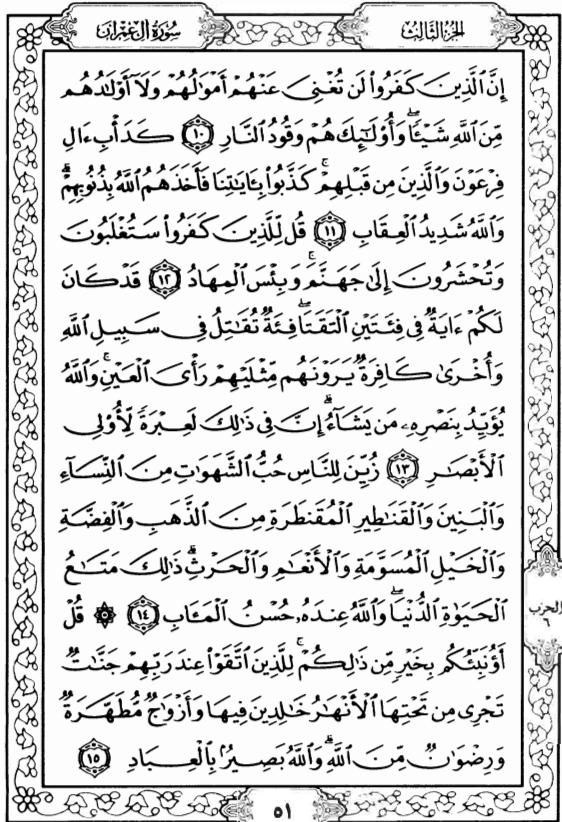 الجزء الثالث
سورة آل عمران
إِنَّ ٱلَّذِينَ كَفَرُوا۟ لَن تُغْنِىَ عَنْهُمْ أَمْوَٰلُهُمْ وَلَآ أَوْلَـٰدُهُم
مِّنَ ٱللَّهِ شَيْـًٔا ۖ وَأُو۟لَـٰٓئِكَ هُمْ وَقُودُ ٱلنَّارِ ١٠ كَدَأْبِ ءَالِ
فِرْعَوْنَ وَٱلَّذِينَ مِن قَبْلِهِمْ ۚ كَذَّبُوا۟ بِـَٔايَـٰتِنَا فَأَخَذَهُمُ ٱللَّهُ بِذُنُوبِهِمْ ۗ
وَٱللَّهُ شَدِيدُ ٱلْعِقَابِ ١١ قُل لِّلَّذِينَ كَفَرُوا۟ سَتُغْلَبُونَ
وَتُحْشَرُونَ إِلَىٰ جَهَنَّمَ ۚ وَبِئْسَ ٱلْمِهَادُ ١٢ قَدْ كَانَ
لَكُمْ ءَايَةٌ فِى فِئَتَيْنِ ٱلْتَقَتَا ۖ فِئَةٌ تُقَـٰتِلُ فِى سَبِيلِ ٱللَّهِ
وَأُخْرَىٰ كَافِرَةٌ يَرَوْنَهُم مِّثْلَيْهِمْ رَأْىَ ٱلْعَيْنِ ۚ وَٱللَّهُ
يُؤَيِّدُ بِنَصْرِهِۦ مَن يَشَآءُ ۗ إِنَّ فِى ذَٰلِكَ لَعِبْرَةً لِّأُو۟لِى
ٱلْأَبْصَـٰرِ ١٣ زُيِّنَ لِلنَّاسِ حُبُّ ٱلشَّهَوَٰتِ مِنَ ٱلنِّسَآءِ
وَٱلْبَنِينَ وَٱلْقَنَـٰطِيرِ ٱلْمُقَنطَرَةِ مِنَ ٱلذَّهَبِ وَٱلْفِضَّةِ
وَٱلْخَيْلِ ٱلْمُسَوَّمَةِ وَٱلْأَنْعَـٰمِ وَٱلْحَرْثِ ۗ ذَٰلِكَ مَتَـٰعُ
ٱلْحَيَوٰةِ ٱلدُّنْيَا ۖ وَٱللَّهُ عِندَهُۥ حُسْنُ ٱلْمَـَٔابِ ١٤ ۞ قُلْ
أَؤُنَبِّئُكُم بِخَيْرٍ مِّن ذَٰلِكُمْ ۚ لِلَّذِينَ ٱتَّقَوْا۟ عِندَ رَبِّهِمْ جَنَّـٰتٌ
تَجْرِى مِن تَحْتِهَا ٱلْأَنْهَـٰرُ خَـٰلِدِينَ فِيهَا وَأَزْوَٰجٌ مُّطَهَّرَةٌ
وَرِضْوَٰنٌ مِّنَ ٱللَّهِ ۗ وَٱللَّهُ بَصِيرٌۢ بِٱلْعِبَادِ ١٥
الحزب
٦
٥١